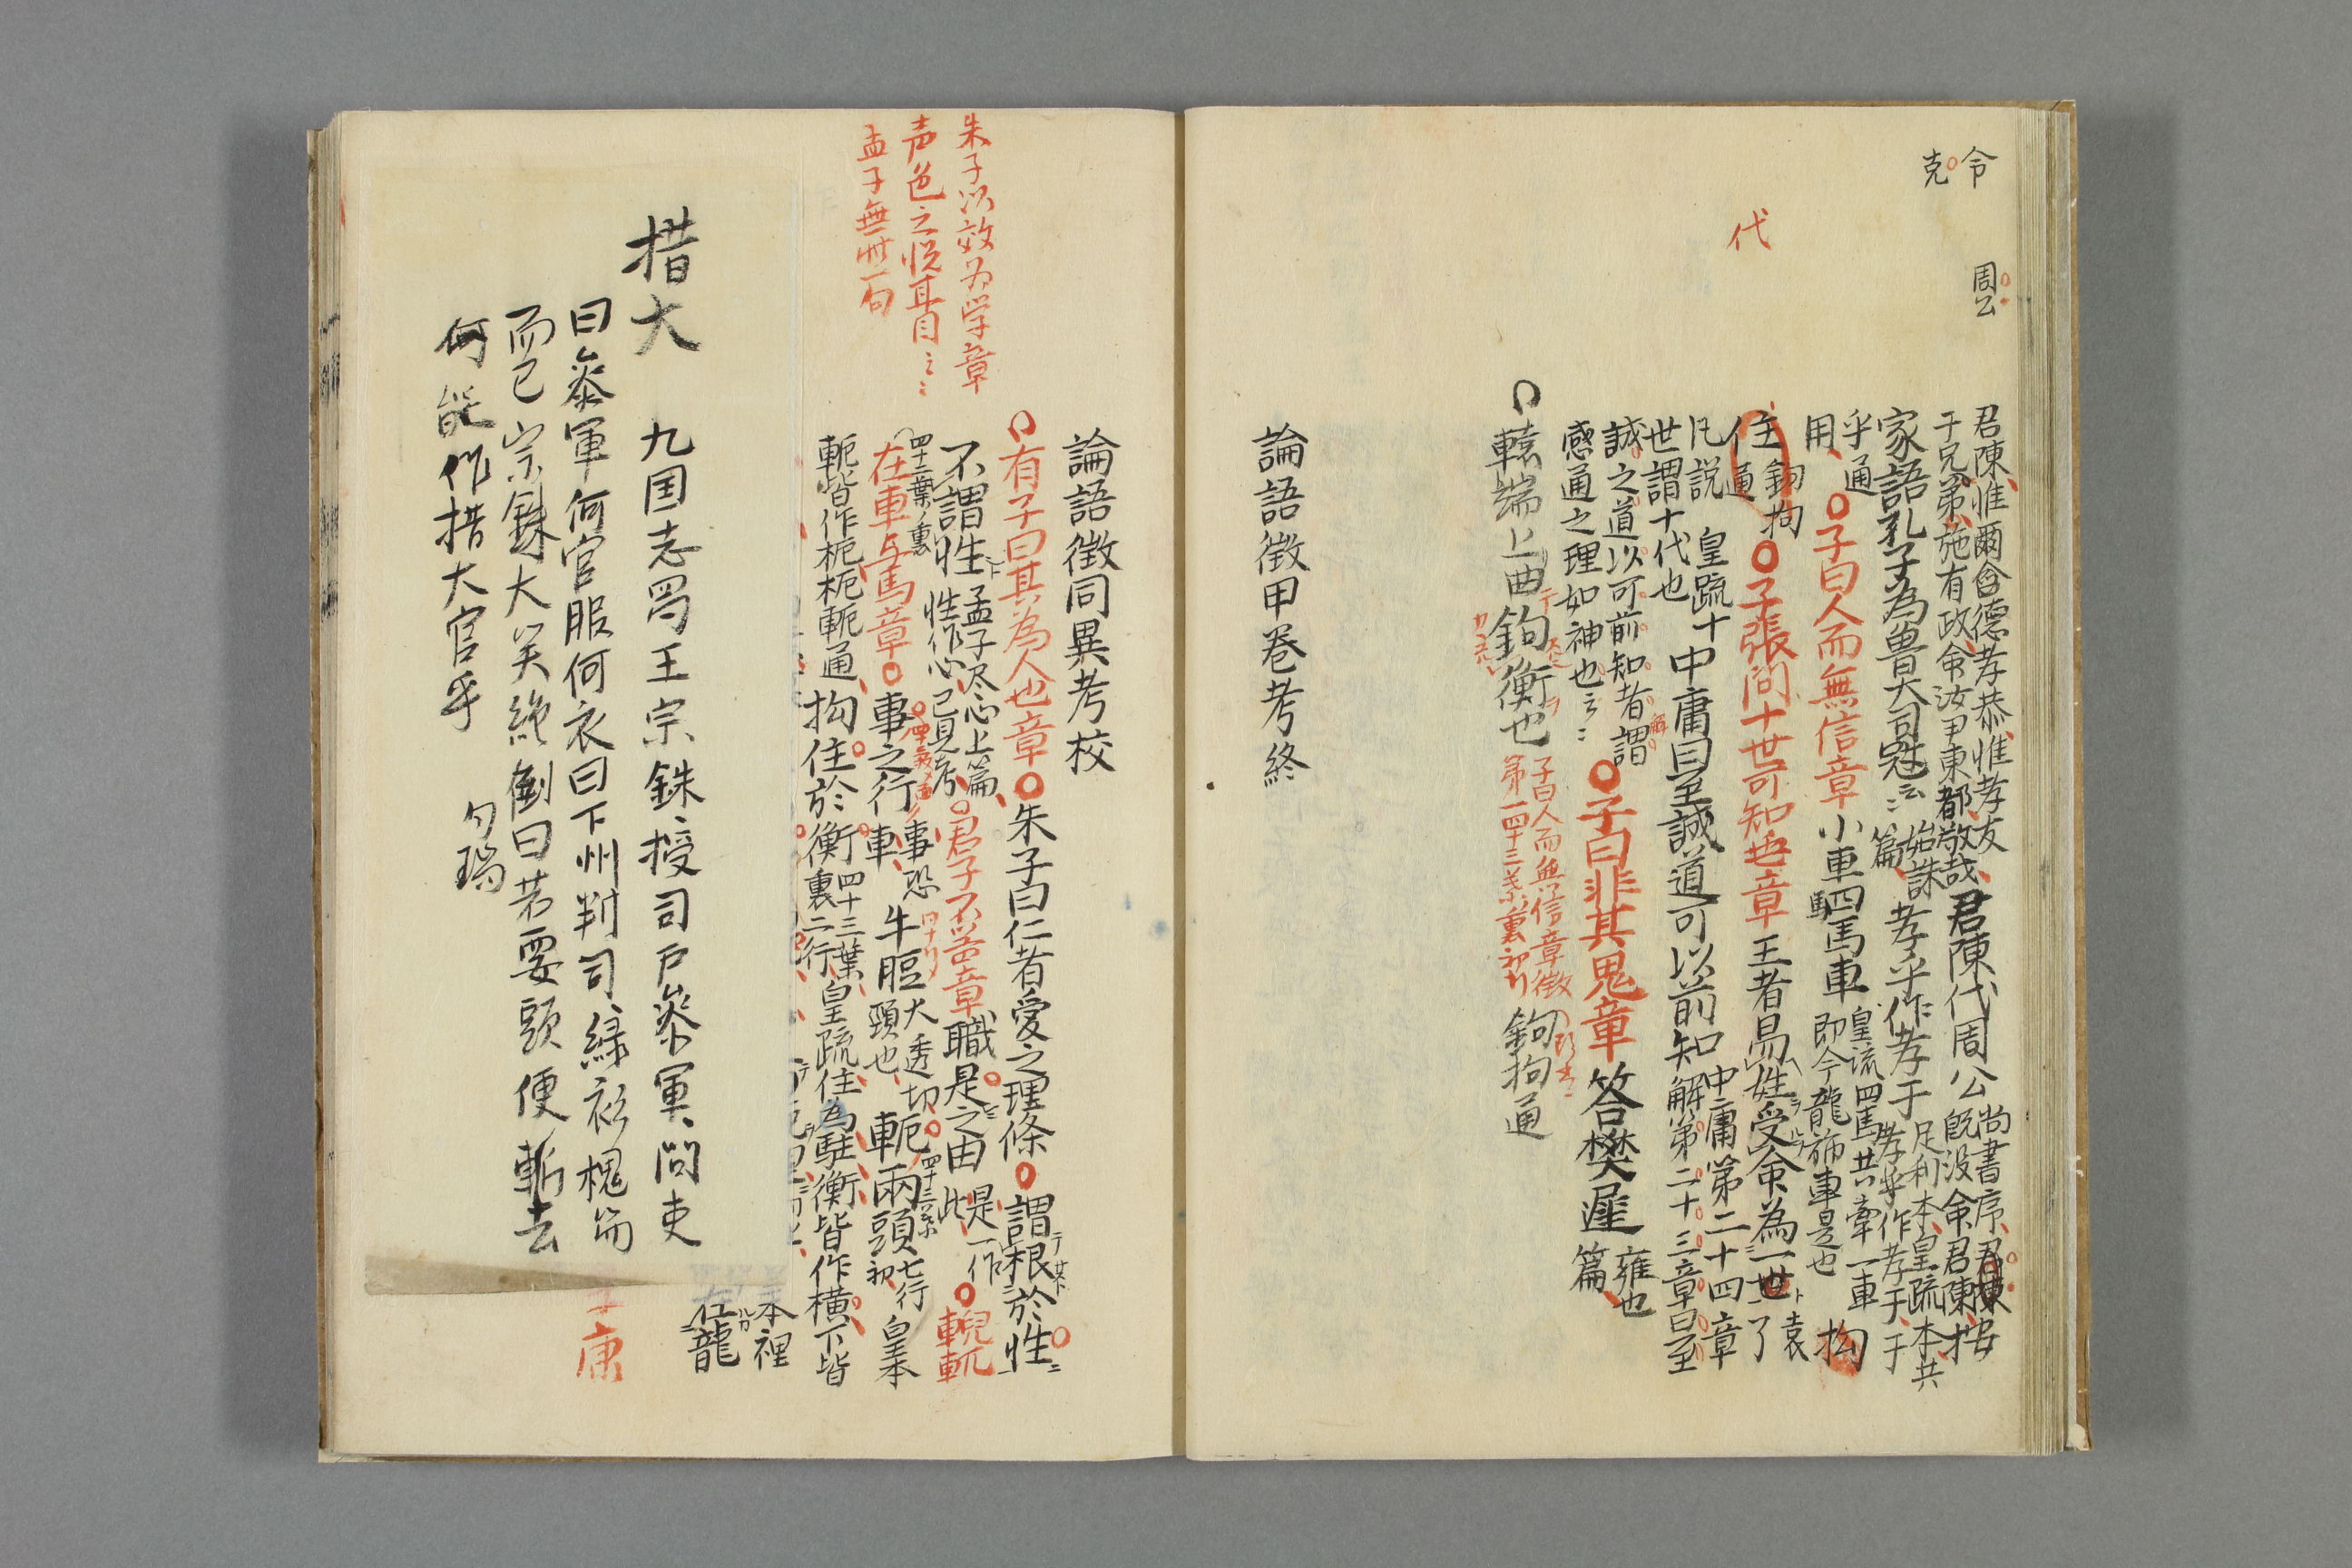 令
克
周公
代
君陳惟爾令德孝恭惟孝友
于兄弟施有政命汝尹東都敬哉
君陳代周公
尚書序
既没命君陳
按
家語孔子為魯大司冠云〻
始誅
篇
孝乎作孝于
足利本皇疏本共
孝乎作孝于于
乎通
用
子曰人而無信章
小車四馬車
皇疏四馬共牽一車
即今龍旂車是也
拘
住
鉤拘
通
子張問十世可知也章
王者易姓受命為一世
袁
了
凡説
皇疏十
世謂十代也
中庸曰至誠道可以前知
中庸第二十四章
解第二十三章曰至
誠之道以可前知者謂
感通之理如神也云〻
子曰非其鬼章
答樊遲
雍也
篇
轅端上曲鉤衡也
子曰人而無信章徵
第一四十三葉裏初行
鉤拘通
論語徵甲卷考終
論語徵同異考校
朱子以效为学章
声色之悦耳目云〻
孟子無此一句
有子曰其為人也章
朱子曰仁者愛之理條
謂根於性
不謂性
孟子尽心上篇
性作心已見考
君子不器章
職是之由
是一作
此
輗軏
四十二葉ノ裏
在車与馬章
事之行車
事恐
牛脰
大透切
頸也
軛兩頭
四十三葉
七行
初
皇本
軛皆作枙枙軛通
拘住於衡
四十三葉
裏二行
皇疏住為駐衡皆作横下皆
本裡
龍
康
措大
九国志蜀王宗銖授司戸參軍問吏
曰參軍何官服何衣曰下州判司緑衫槐笏
而已宗銖大笑絶倒曰若要頭便斬去
何能作措大官乎
勾瑞